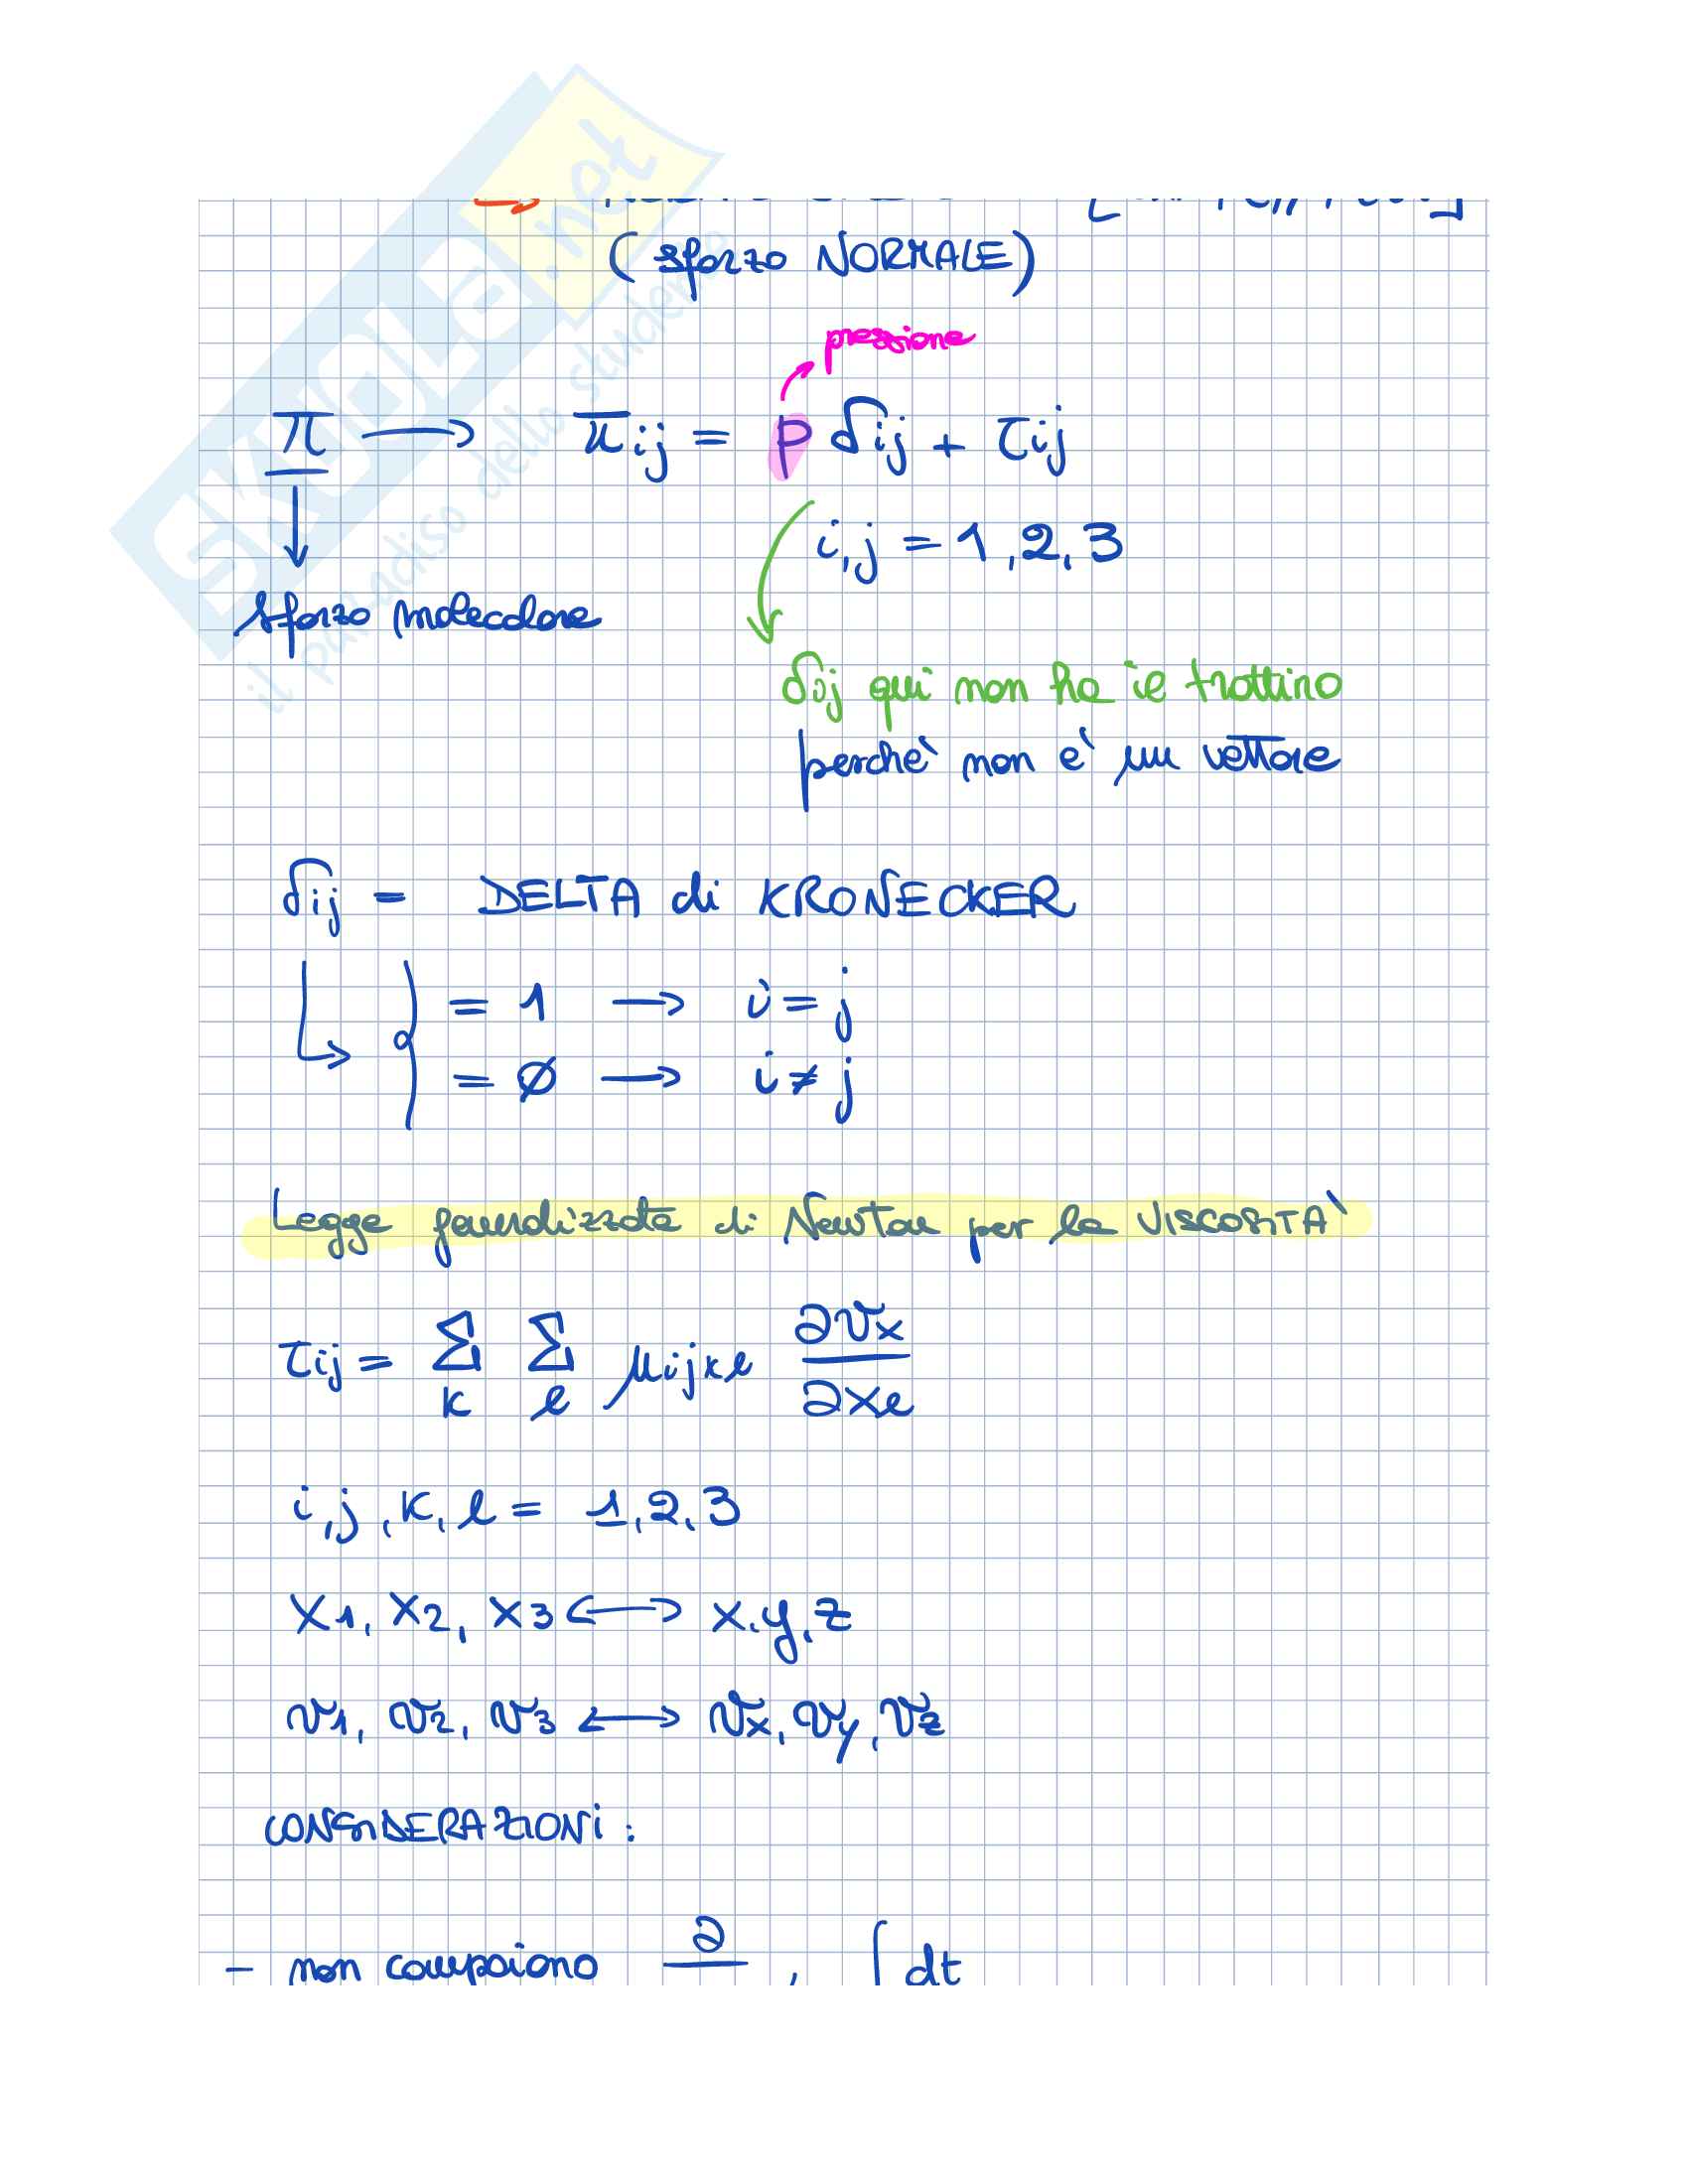 (sforzo NORMALE)
pressione
π → πij = p δij + τij
i,j = 1,2,3
sforzo molecolare
δij qui non ha il trattino
perchè non è un vettore
δij = DELTA di KRONECKER
= 1 → i = j
= ∅ → i ≠ j
Legge generalizzata di Newton per la VISCOSITA'
τij = Σk Σl μijkl ∂vx/∂xl
i,j,k,l = 1,2,3
x1, x2, x3 ↔ x,y,z
v1, v2, v3 ↔ vx, vy, vz
CONSIDERAZIONI:
- non compaiono ∂ , ∫dt
SKUOLA.net
il paradiso dello studente